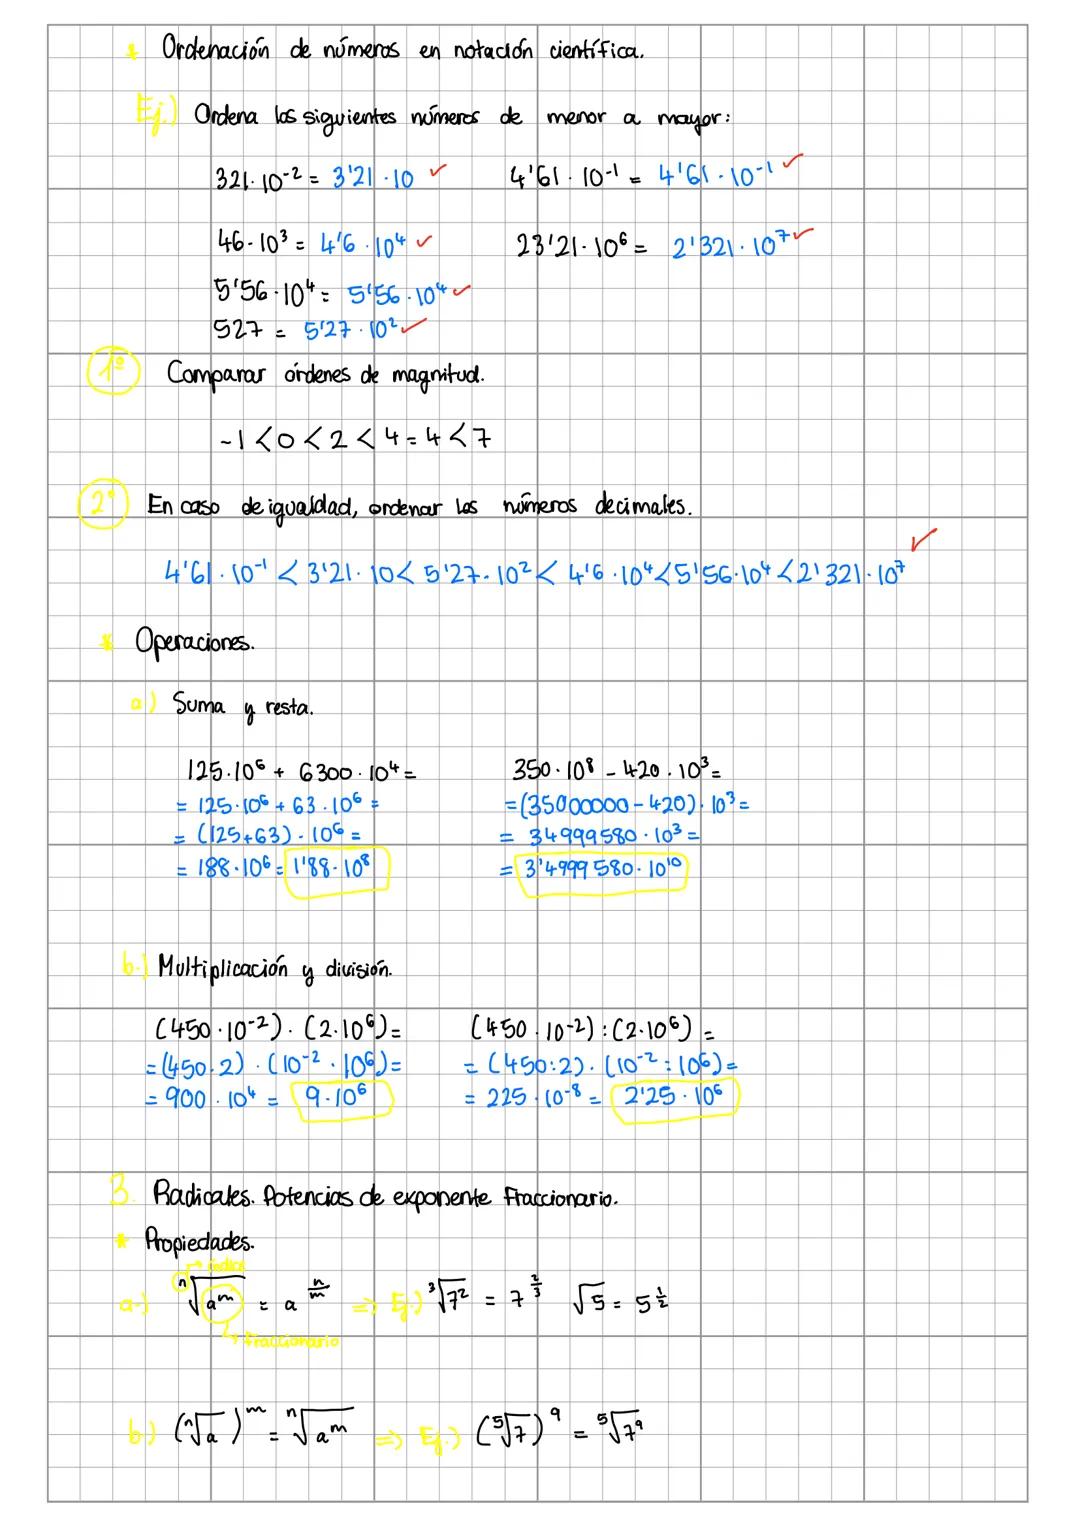 * Ordenación de números en notación científica.
Ej.) Ordena los siguientes números de menor a mayor:
321·10⁻² = 3'21·10 ✓ 4'61·10⁻¹ = 4'61·10⁻¹ ✓
46·10³ = 4'6·10⁴ ✓ 23'21·10⁶ = 2'321·10⁷ ✓
5'56·10⁴ = 5'56·10⁴ ✓
527 = 5'27·10² ✓
1º Comparar órdenes de magnitud.
-1 < 0 < 2 < 4 = 4 < 7
2º En caso de igualdad, ordenar los números decimales.
4'61·10⁻¹ < 3'21·10 < 5'27·10² < 4'6·10⁴ < 5'56·10⁴ < 2'321·10⁷ ✓
* Operaciones.
a) Suma y resta.
125·10⁶ + 6300·10⁴ = 350·10⁸ - 420·10³ =
= 125·10⁶ + 63·10⁶ = = (35000000 - 420)·10³ =
= (125+63)·10⁶ = = 34999580·10³ =
= 188·10⁶ = 1'88·10⁸ = 3'4999580·10¹⁰
b.) Multiplicación y división.
(450·10⁻²)·(2·10⁶) = (450·10⁻²):(2·10⁶) =
= (450·2)·(10⁻²·10⁶) = = (450:2)·(10⁻²:10⁶) =
= 900·10⁴ = 9·10⁶ = 225·10⁻⁸ = 2'25·10⁶
3. Radicales. Potencias de exponente fraccionario.
* Propiedades.
→ índice
a.) ⁿ√aᵐ = a^(n/m) => Ej.) ³√7² = 7^(2/3) √5 = 5^(1/2)
↳ Fraccionario
b) (ⁿ√a)ᵐ = ⁿ√aᵐ => Ej.) (⁵√7)⁹ = ⁵√7⁹